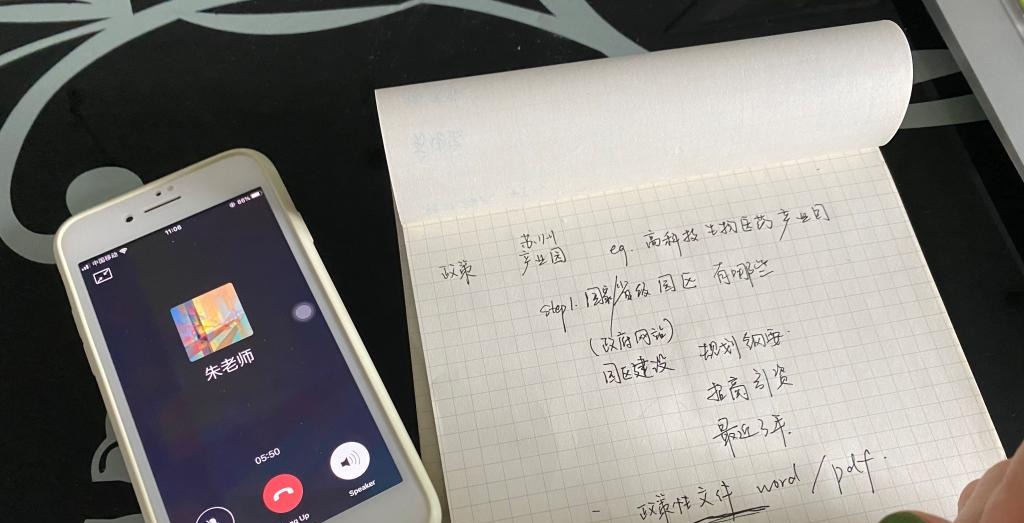 中国移动
11:08
86%
朱老师
05:50
Speaker
ng Up
苏州
政策 产业园 eg. 高科技生物医药产业园
step1. 国家/省级园区 有哪些
(政府网站)
园区建设 规划纲要
招商引资
最近3年.
- 政策性文件 word / pdf.